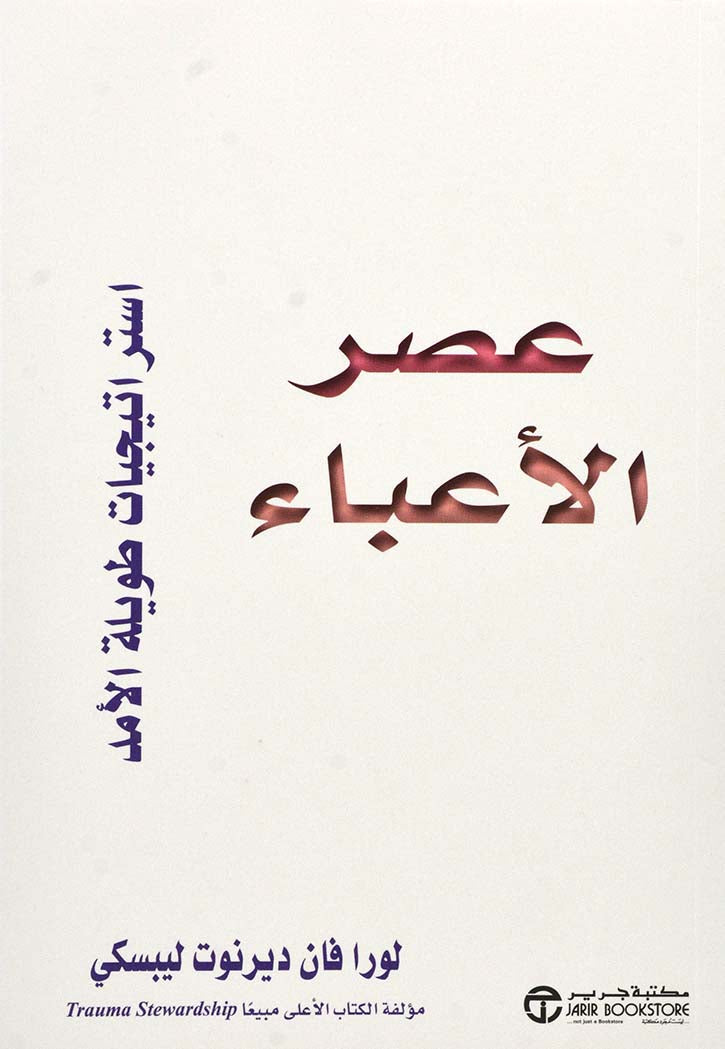 عصر
الأعباء
استراتيجيات طويلة الأمد
لورا فان ديرنوت ليبسكي
مؤلفة الكتاب الأعلى مبيعًا Trauma Stewardship
مكتبة جرير
JARIR BOOKSTORE
...not just a Bookstore
ليست مجرد مكتبة...